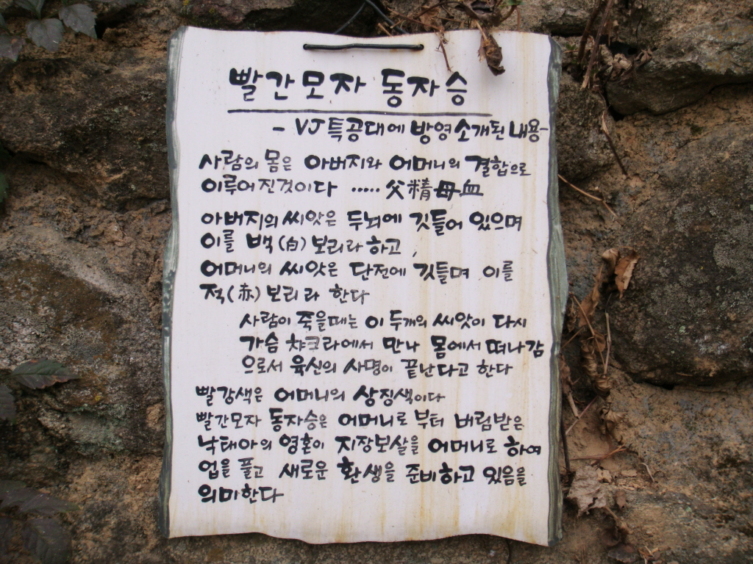 빨간모자 동자승
- VJ특공대에 방영 소개된 내용-
사람의 몸은 아버지와 어머니의 결합으로
이루어진것이다 ..... 父精母血
아버지의 씨앗은 두뇌에 깃들어 있으며
이를 백(白)보리라 하고,
어머니의 씨앗은 단전에 깃들며 이를
적(赤)보리라 한다
사람이 죽을때는 이 두개의 씨앗이 다시
가슴 챠크라에서 만나 몸에서 떠나감
으로서 육신의 사명이 끝난다고 한다
빨강색은 어머니의 상징색이다
빨간모자 동자승은 어머니로 부터 버림받은
낙태아의 영혼이 지장보살을 어머니로 하여
업을 풀고 새로운 환생을 준비하고 있음을
의미한다